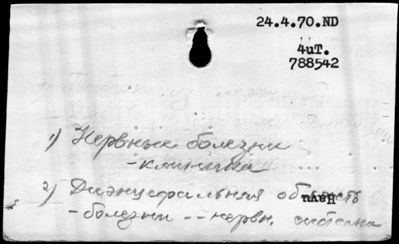 24.4.70.ND
4uT.
788542
1) Нервные болезни
-клиника
2) Диэнцефальная область
-болезни -- нервн. система